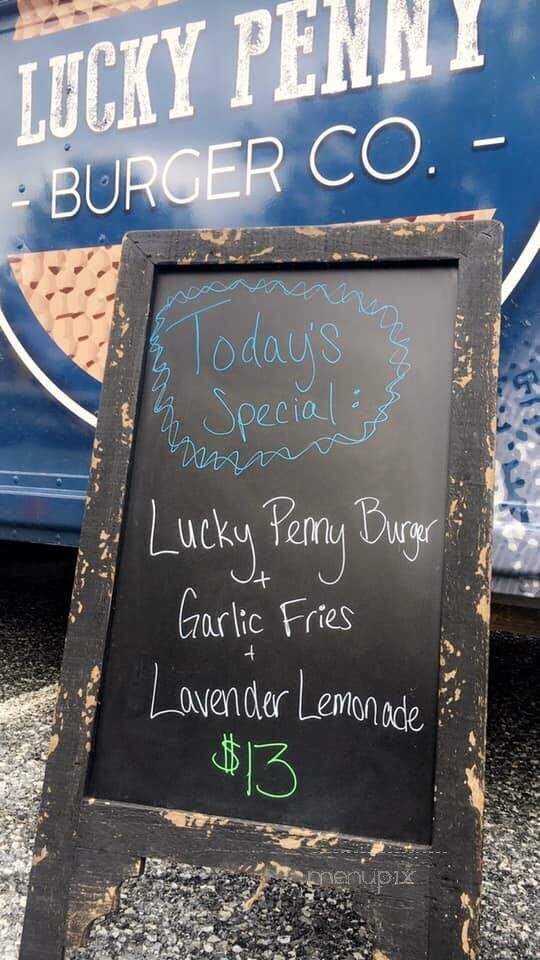 LUCKY PENNY
- BURGER CO. -
Today's
Special:
Lucky Penny Burger
+
Garlic Fries
+
Lavender Lemonade
$13
menupix